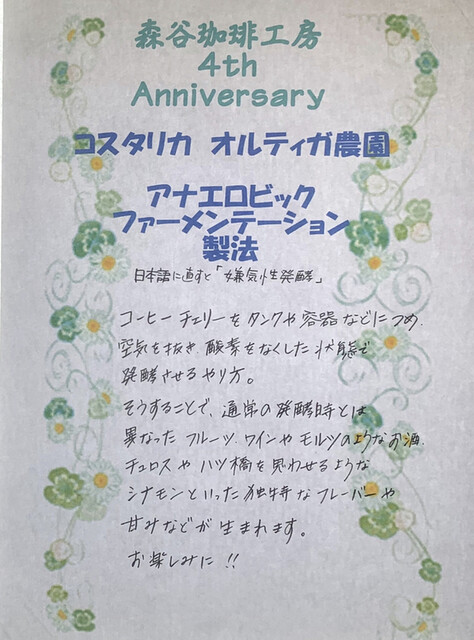 森谷珈琲工房
4th
Anniversary
コスタリカ オルティガ農園
アナエロビック
ファーメンテーション
製法
日本語に直すと「嫌気性発酵」
コーヒーチェリーをタンクや容器などにつめ、
空気を抜き、酸素をなくした状態で
発酵させるやり方。
そうすることで、通常の発酵時とは
異なったフルーツ、ワインやモルツのようなお酒、
チュロスや八ツ橋を思わせるような
シナモンといった独特なフレーバーや
甘みなどが生まれます。
お楽しみに!!